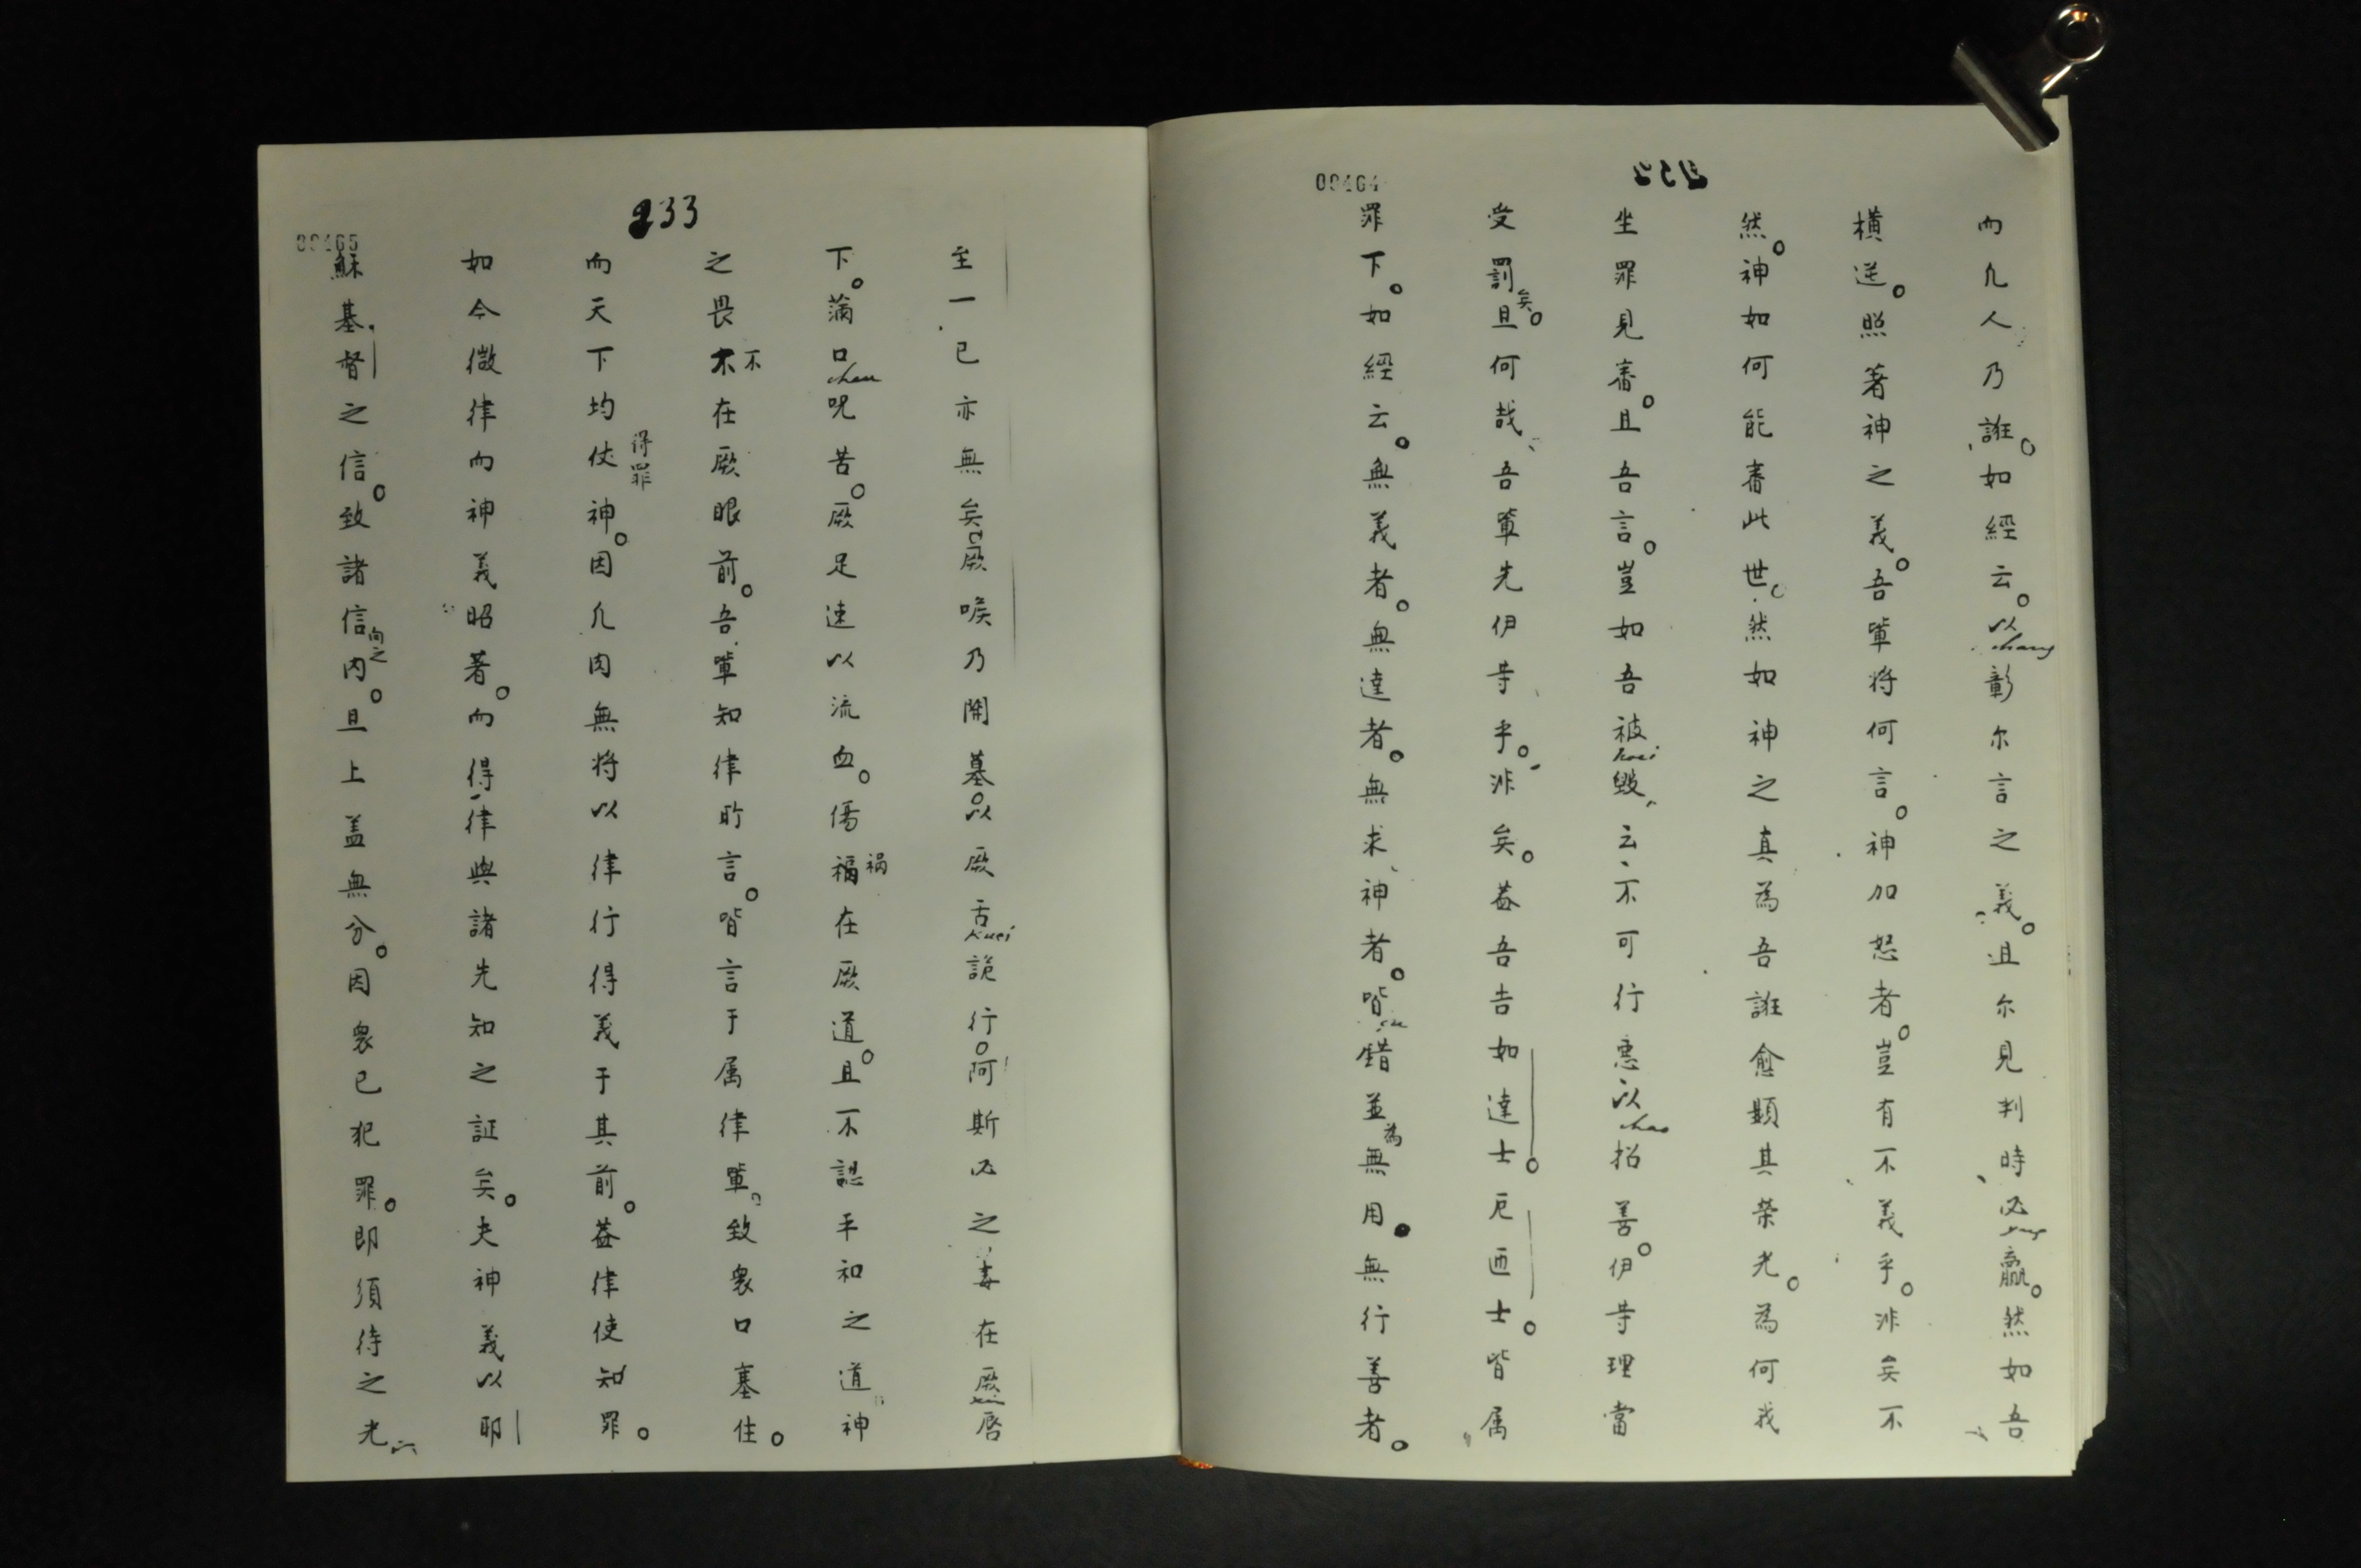 00464
232
而凡人乃誑。如經云。以chang彰尔言之義。且尔見判時必yng贏。然如吾
橫逆。照著神之義。吾輩将何言。神加怒者。豈有不義乎。非矣不
然。神如何能審此世。然如神之真為吾誑愈顯其榮光。為何我
坐罪見審。且吾言。豈如吾被huei毀、云、不可行惡以chao招善。伊等理當
受罰矣。且何哉、吾輩先伊等乎。非矣。蓋吾告如達士。厄靣士。皆属
罪下。如經云。無義者。無達者。無求神者。皆錯並為無用。無行善者。
233
00465
至一已亦無矣。厥喉乃開墓。以厥舌kuei詭行。阿斯必之毒在厥唇
下。滿口chou呪苦。厥足速以流血。傷福禍在厥道。且不認平和之道神
之畏不不在厥眼前。吾輩知律所言。皆言于属律輩。致衆口塞住。
而天下均伏得罪神。因凡肉無将以律行得義于其前。蓋律使知罪。
如今微律而神義昭著。而得律與諸先知之証矣。夫神義以耶
穌基督之信。致諸信向之内。且上盖無分。因衆已犯罪。即須待之光